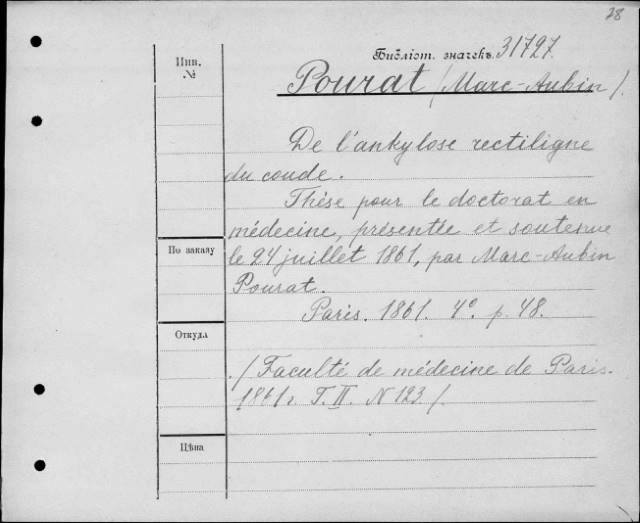 28
Инв.
№
Библіот. значекъ 31727.
Pourat /Marc-Aubin/.
De l'ankylose rectiligne
du coude.
Thèse pour le doctorat en
médecine, présentée et soutenue
По заказу
le 24 juillet 1861, par Marc-Aubin
Pourat.
Paris. 1861. 4º. p. 48.
Откуда
/Faculté de médecine de Paris.
1861 г. T. II. N 123/.
Цѣна